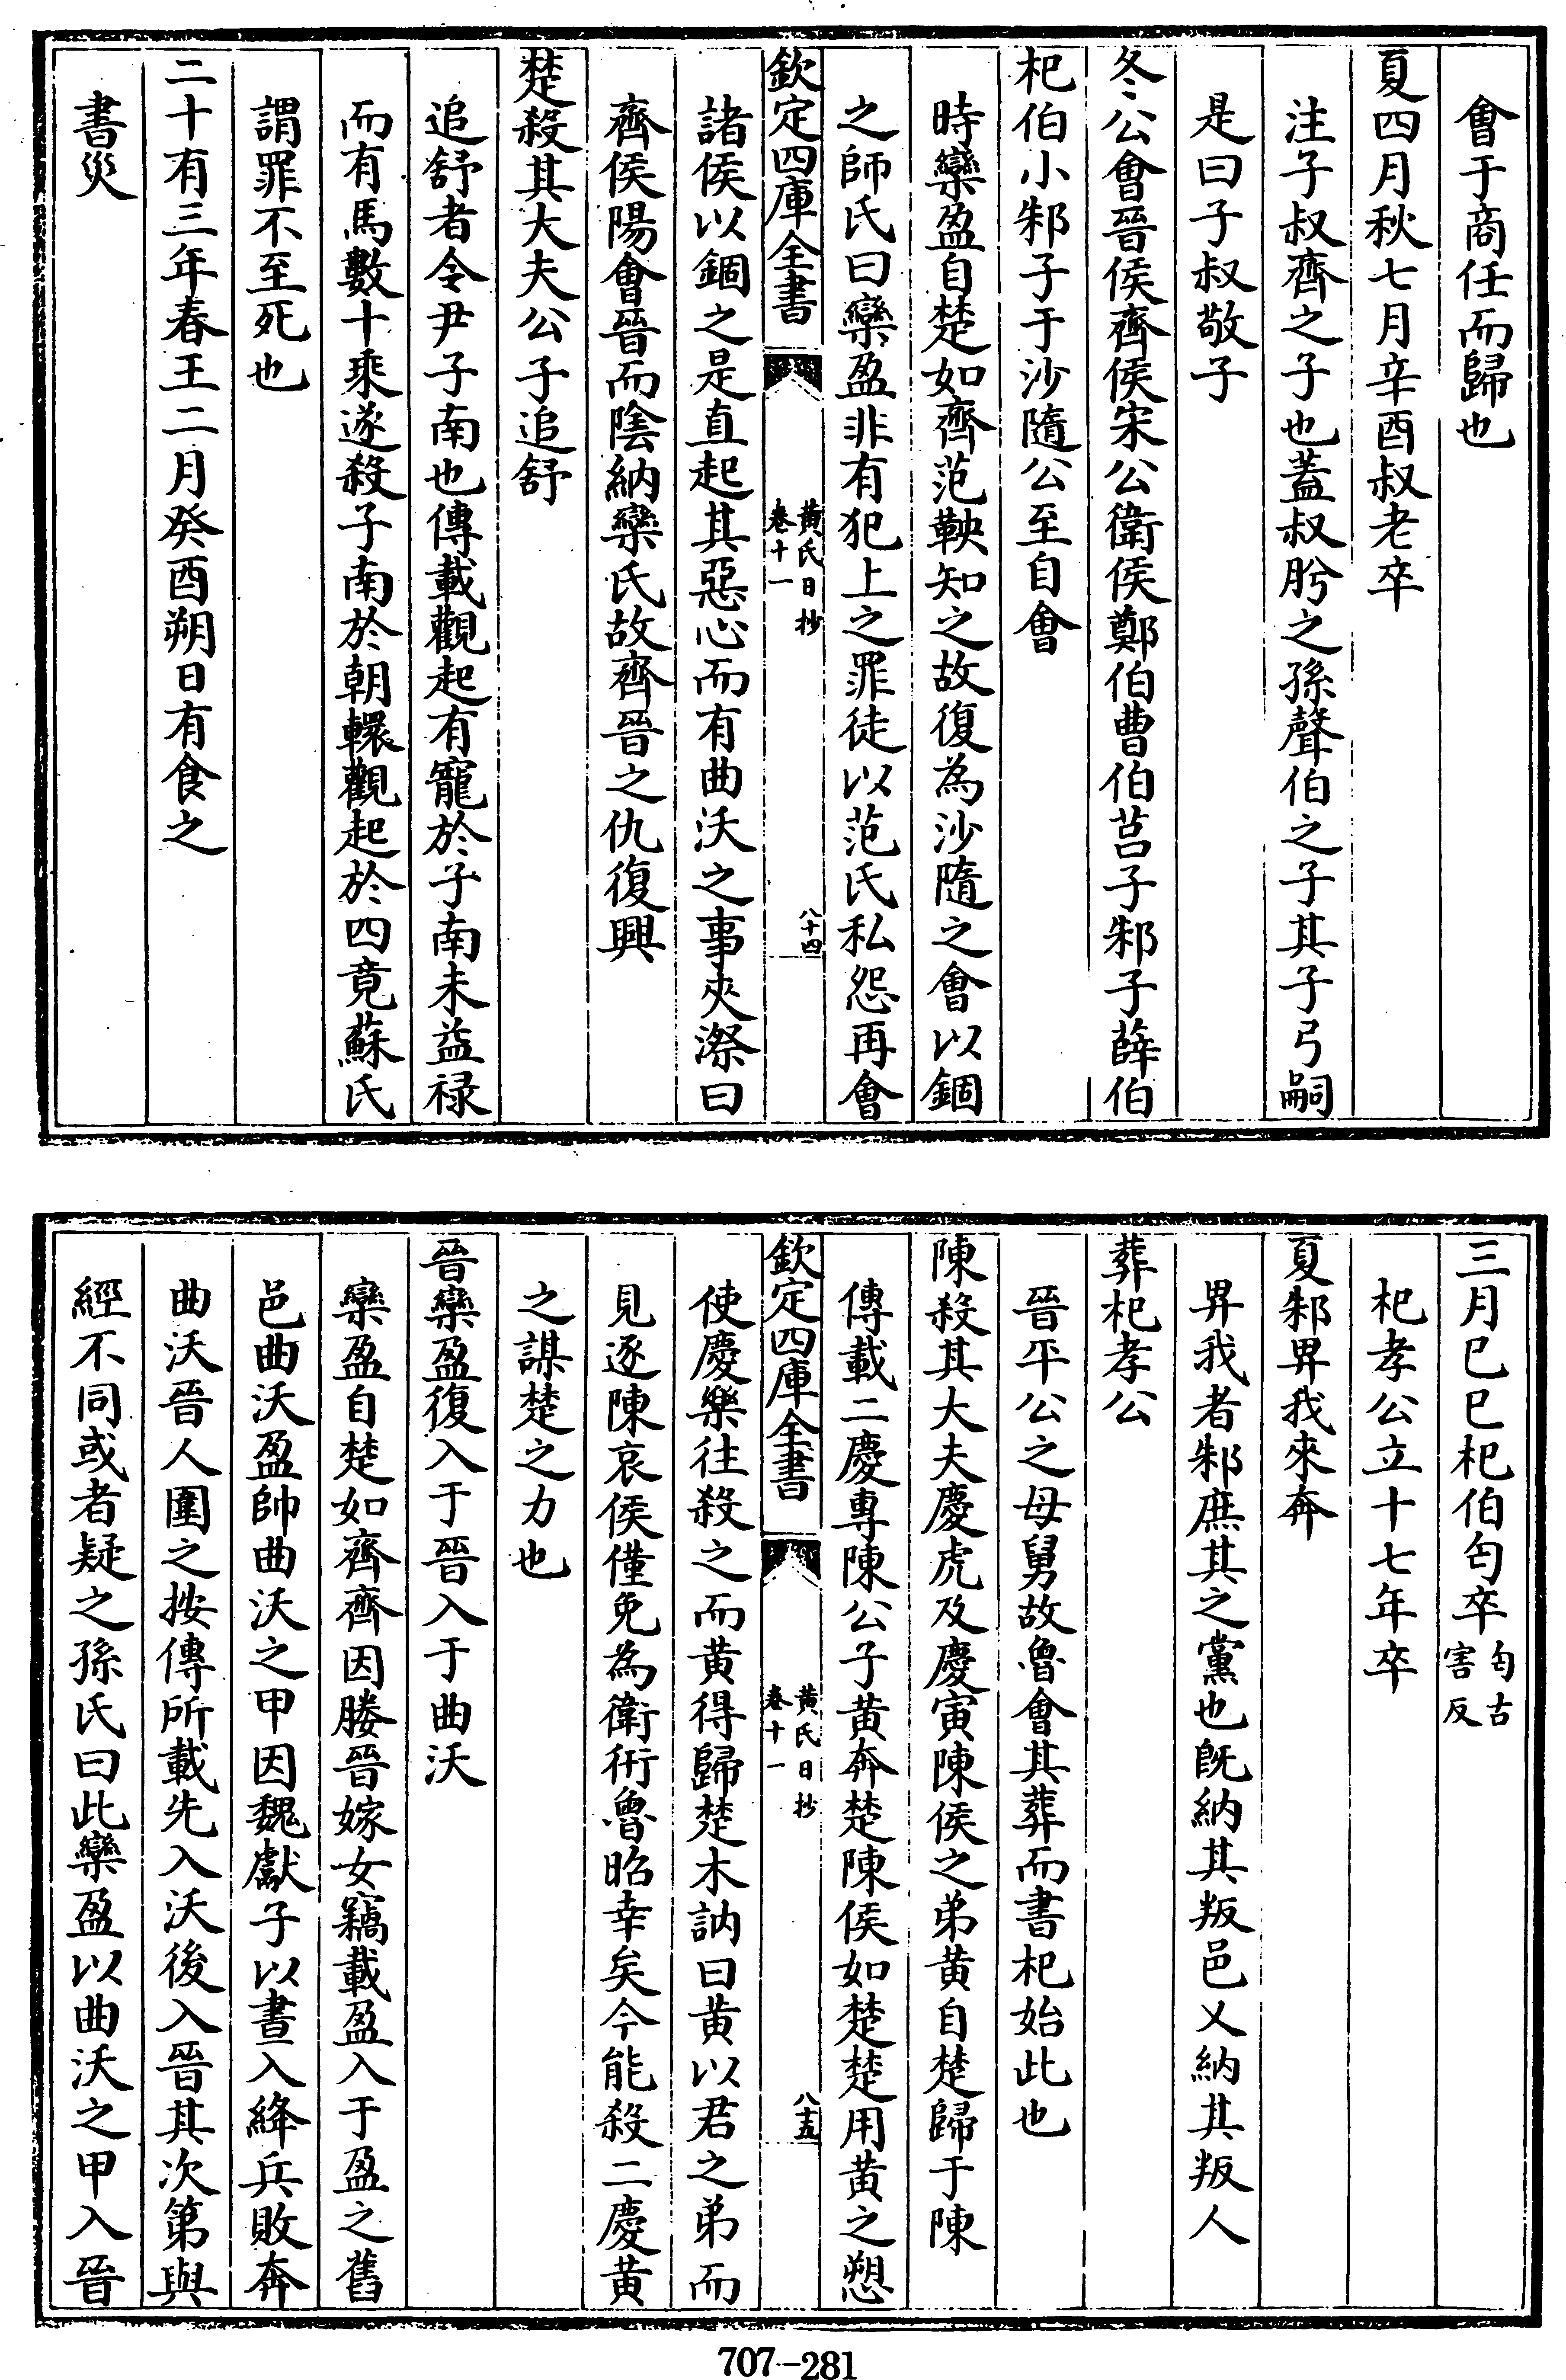 會于商任而歸也
夏四月秋七月辛酉叔老卒
注子叔齊之子也蓋叔肸之孫聲伯之子其子弓嗣
是曰子叔敬子
冬公會晉侯齊侯宋公衛侯鄭伯曹伯莒子邾子薛伯
杞伯小邾子于沙隨公至自會
時欒盈自楚如齊范鞅知之故復為沙隨之會以錮
之師氏曰欒盈非有犯上之罪徒以范氏私怨再會
欽定四庫全書
黄氏日抄
卷十一
八十四
諸侯以錮之是直起其惡心而有曲沃之事夾漈曰
齊侯陽會晉而陰納欒氏故齊晉之仇復興
楚殺其大夫公子追舒
追舒者令尹子南也傳載觀起有寵於子南未益禄
而有馬數十乘遂殺子南於朝轘觀起於四竟蘇氏
謂罪不至死也
二十有三年春王二月癸酉朔日有食之
書災
三月巳巳杞伯匄卒匄古害反
杞孝公立十七年卒
夏邾畀我來奔
畀我者邾庶其之黨也既納其叛邑又納其叛人
葬杞孝公
晉平公之母舅故魯會其葬而書杞始此也
陳殺其大夫慶虎及慶寅陳侯之弟黄自楚歸于陳
傳載二慶專陳公子黄奔楚陳侯如楚楚用黄之愬
欽定四庫全書
黄氏日抄
卷十一
八十五
使慶樂往殺之而黄得歸楚木訥曰黄以君之弟而
見逐陳哀侯僅免為衛衎魯昭幸矣今能殺二慶黄
之謀楚之力也
晉欒盈復入于晉入于曲沃
欒盈自楚如齊齊因媵晉嫁女竊載盈入于盈之舊
邑曲沃盈帥曲沃之甲因魏獻子以晝入絳兵敗奔
曲沃晉人圍之按傳所載先入沃後入晉其次第與
經不同或者疑之孫氏曰此欒盈以曲沃之甲入晉
707-281